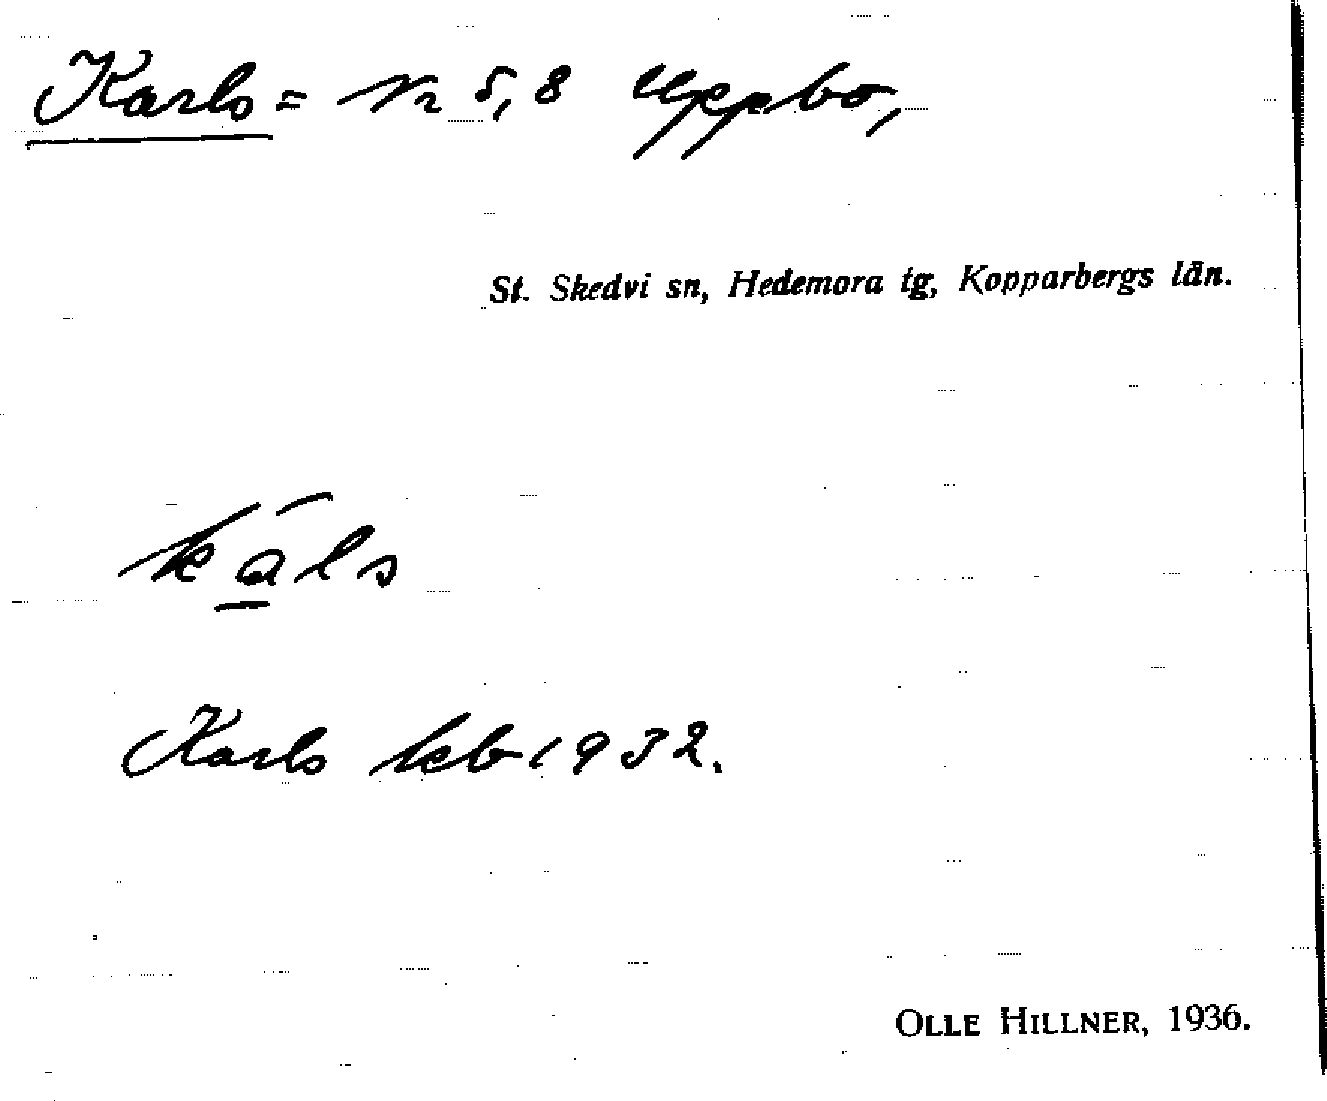 Karls = Nr 5, 8 Uppbo,
St. Skedvi sn, Hedemora tg, Kopparbergs län.
káls
Karls kb 1932.
OLLE HILLNER, 1936.